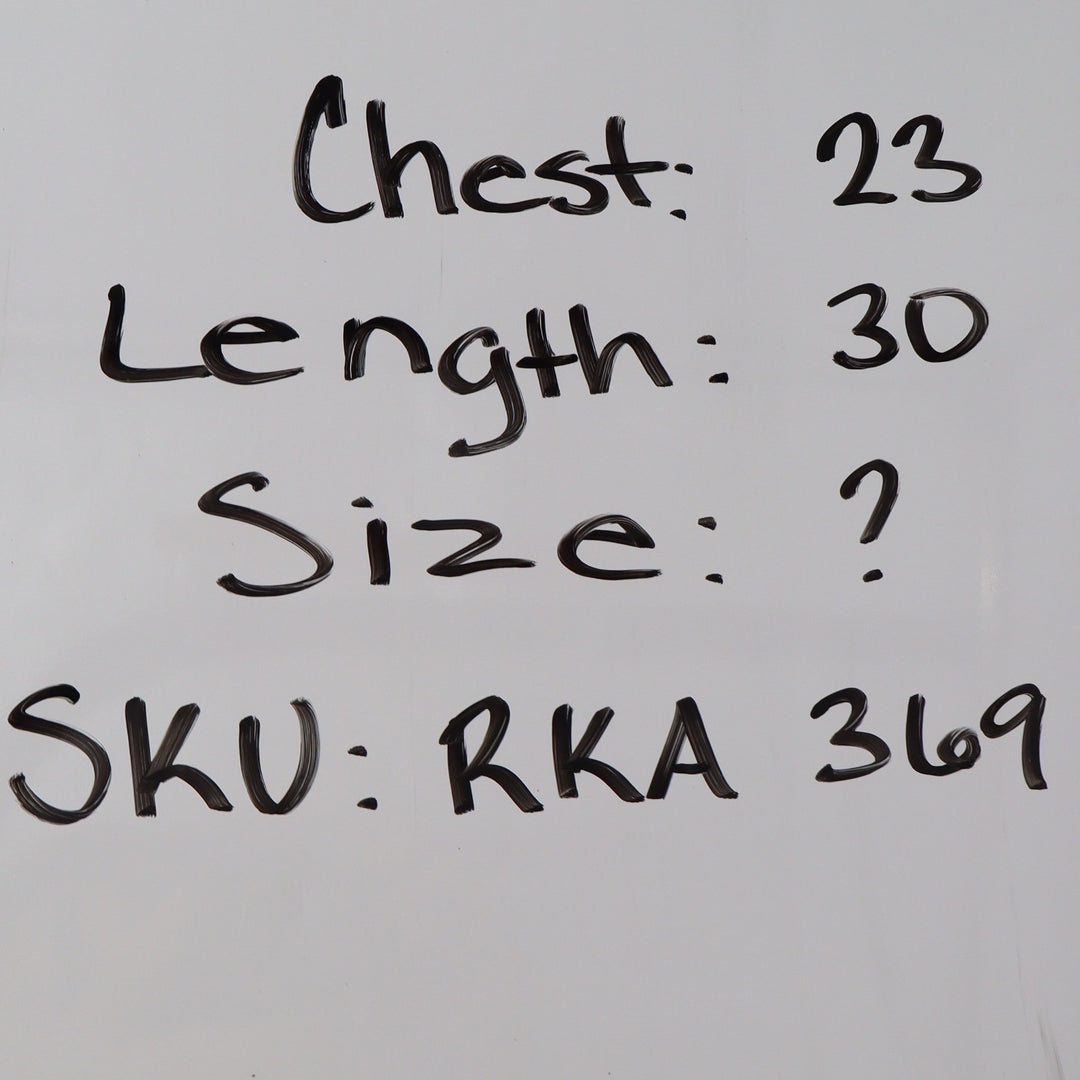 Chest: 23
Length: 30
Size: ?
SKU: RKA 369